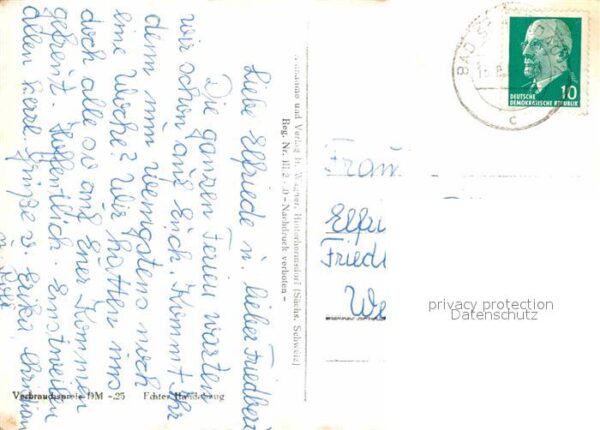 Liebe Elfriede u. lieber Friedbert
Die ganzen Ferien warten
wir schon auf Euch. Kommt Ihr
denn nun wenigstens noch
eine Woche? Wir hatten uns
doch alle so auf Euer Kommen
gefreut. Hoffentlich. Einstweilen
allen herzl. Grüße v. Erika, Christian
u. Rolf
Aufnahme und Verlag H. Wagner, Hinterhermsdorf (Sächs. Schweiz)
Reg. Nr. III 2 – Nachdruck verboten –
Verbraucherpreis DM -.25 Echter Handabzug
BAD
C
10
DEUTSCHE
DEMOKRATISCHE REPUBLIK
Frau
Elfri
Friedl
We
privacy protection
Datenschutz